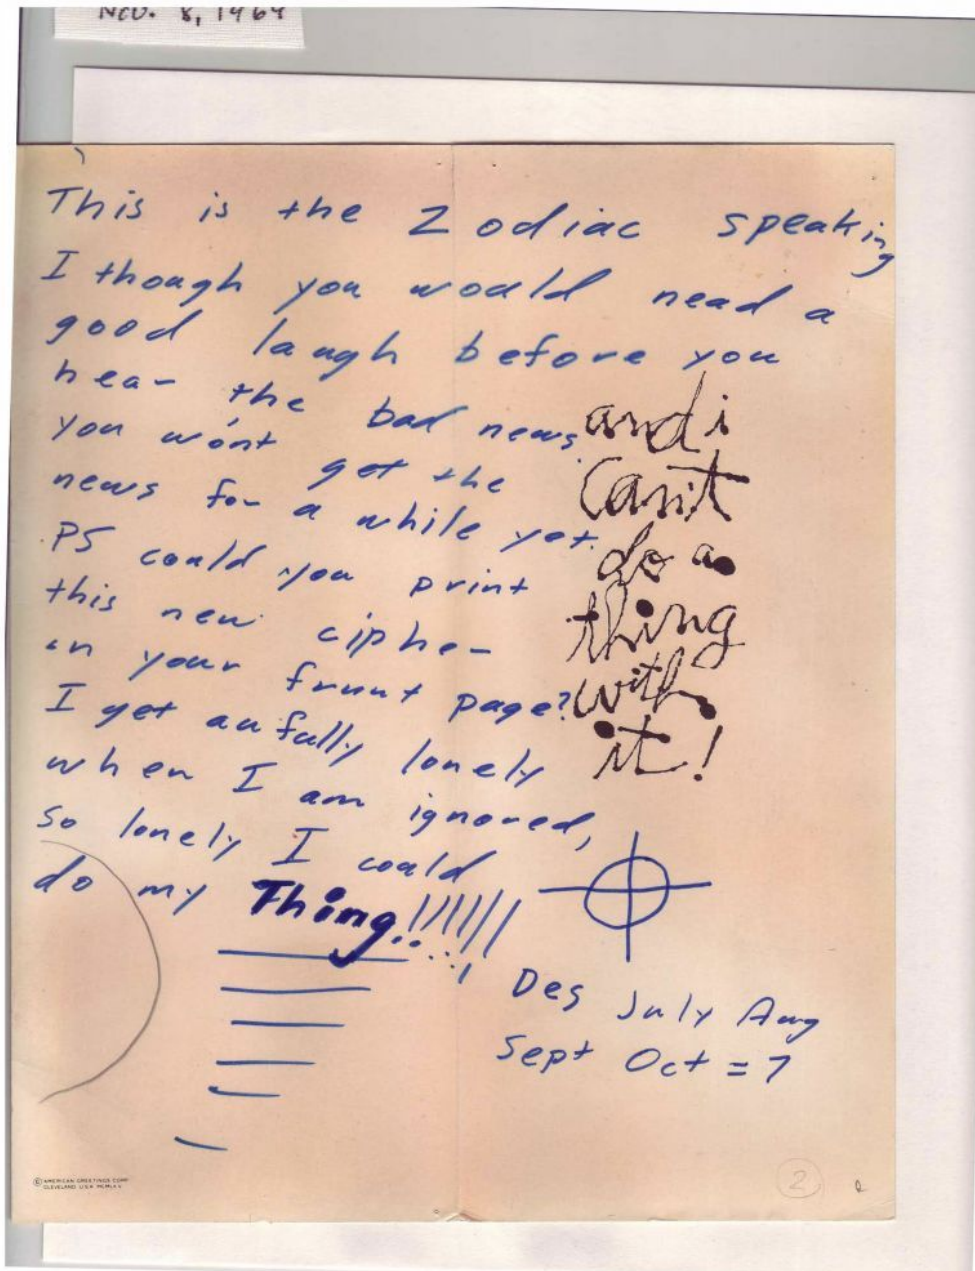 Nov. 8, 1969
This is the Zodiac speaking
I though you would nead a
good laugh before you
hear the bad news.
you won't get the
news for a while yet.
PS could you print
this new cipher
in your frunt page?
I get aufully lonely
when I am ignored,
so lonely I could
do my Thing!!!!!!
and i
can't
do a
thing
with
it!
Des July Aug
Sept Oct = 7
© AMERICAN GREETINGS CORP.
CLEVELAND U.S.A.
2